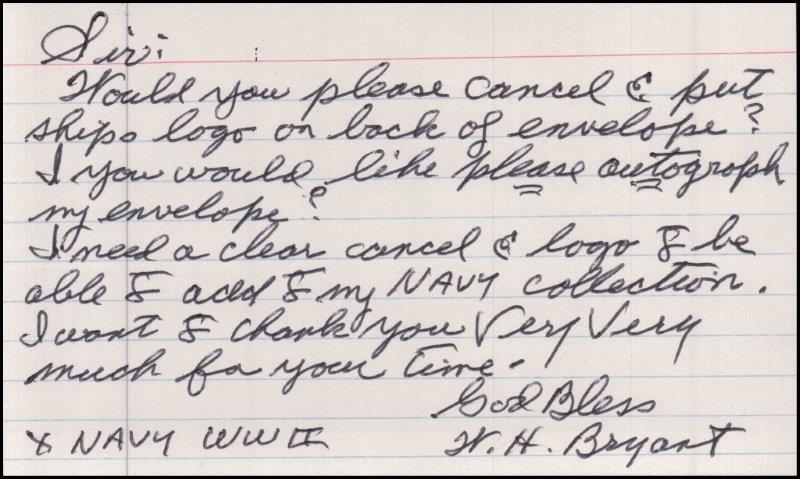 Sir:
Would you please cancel & put
ships logo on back of envelope?
I you would like please autograph
my envelope?
I need a clear cancel & logo to be
able to add to my NAVY collection.
I want to thank you Very Very
much for your time.
God Bless
X NAVY WWII W. H. Bryant